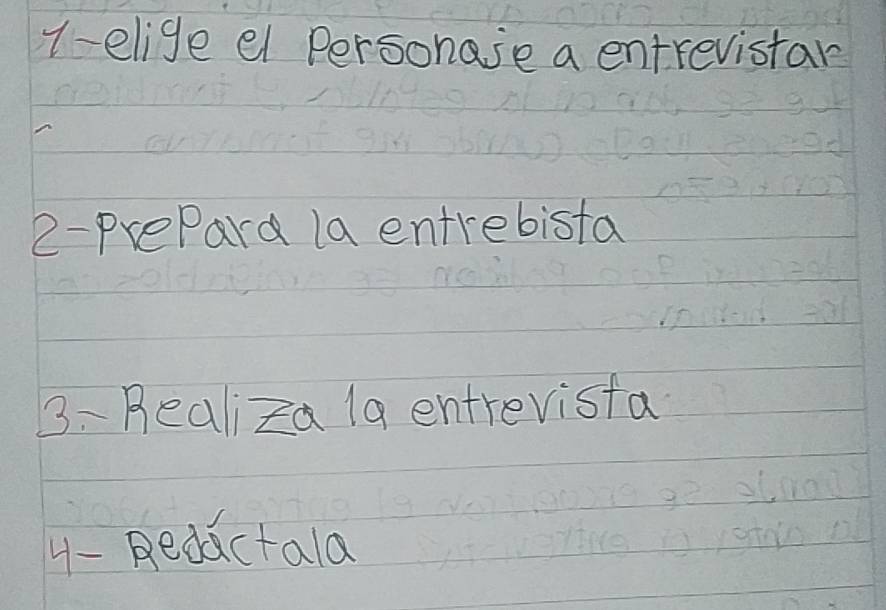 1-elige el Personaje a entrevistar
2-prePara la entrebista
3.-Realiza la entrevista
4-Redáctala